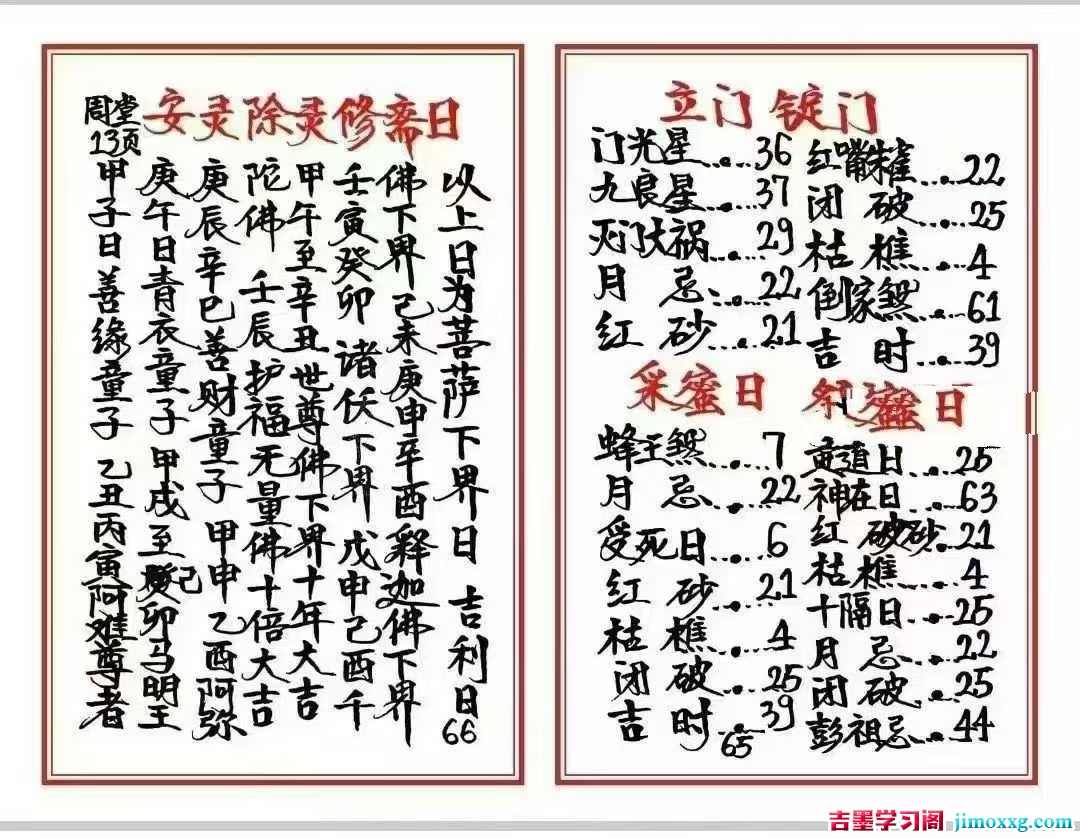 安灵除灵修斋日
周堂
13页
甲子日善缘童子 乙丑丙寅阿难尊者
庚午日青衣童子 甲戌至己卯马明王
庚辰辛巳善财童子 甲申乙酉阿弥
陀佛 壬辰护福无量佛十倍大吉
甲午至辛丑世尊佛下界十年大吉
壬寅癸卯 诸伏下界 戊申己酉千
佛下界 己未庚申辛酉释迦佛下界
以上日为菩萨下界日 吉利日
66
立门 锭门
门光星......36
九良星......37
灭门大祸...29
月 忌......22
红 砂......21
红嘴朱雀...22
闭 破...25
枯 樵...4
倒家煞...61
吉 时...39
采蜜日
蜂王煞......7
月 忌......22
受死日......6
红 砂......21
枯 樵......4
闭 破......25
吉 时......39
祭蜜日
黄道日...25
神在日...63
红 破砂...21
枯樵...4
十隔日...25
月 忌...22
闭 破...25
彭祖忌...44
65
吉墨学习阁 jimoxxg.com